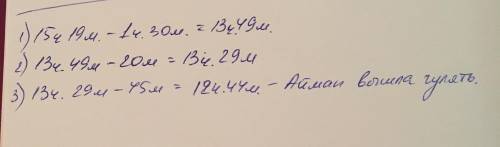 1) 15ч 19м. - 1ч. 30м. = 13ч. 49м.
2) 13ч. 49м - 20м = 13ч. 29м
3) 13ч. 29м - 45м = 12ч. 44м. - Айман вышла гулять.